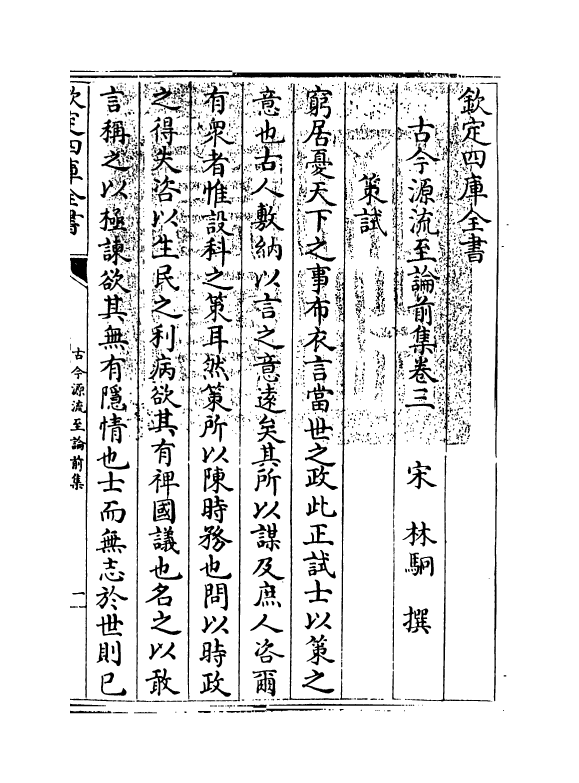 欽定四庫全書
古今源流至論前集卷三
宋 林駉 撰
策試
窮居憂天下之事布衣言當世之政此正試士以策之
意也古人敷納以言之意遠矣其所以謀及庶人咨爾
有衆者惟設科之策耳然策所以陳時務也問以時政
之得失咨以生民之利病欲其有裨國議也名之以敢
言稱之以極諫欲其無有隱情也士而無志於世則已
欽定四庫全書
古今源流至論前集
一